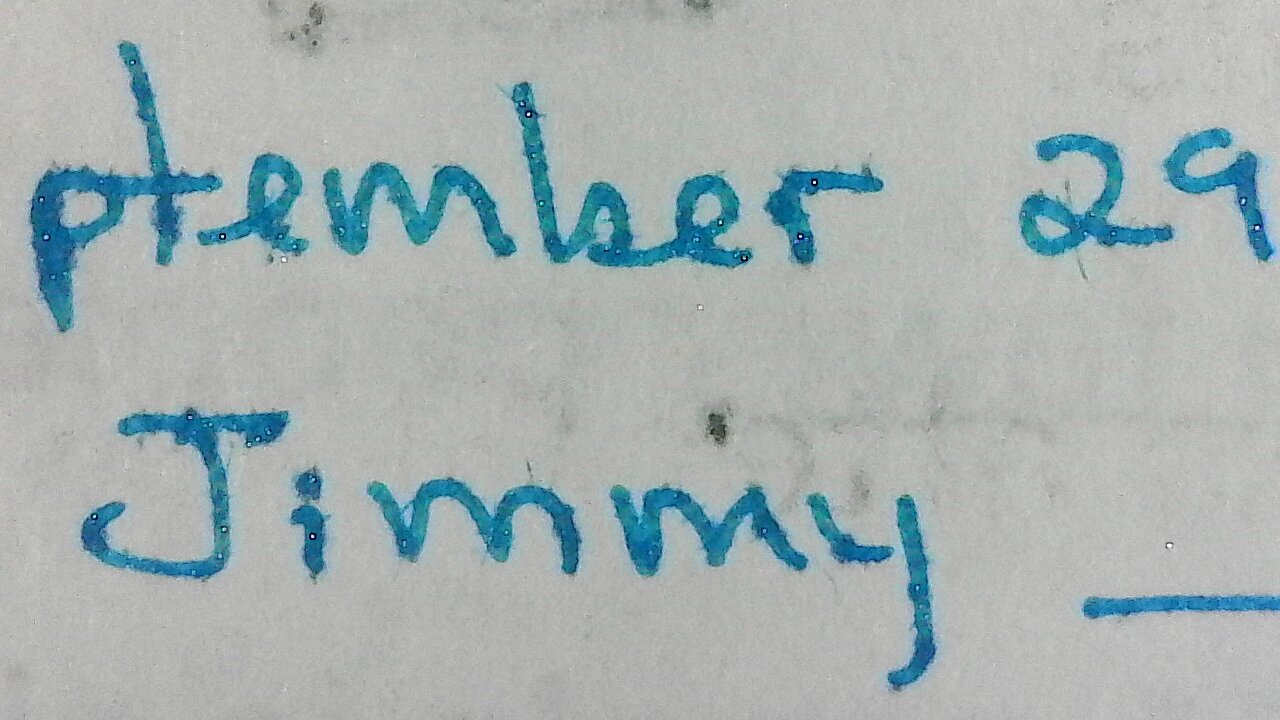 ptember 29
Jimmy _